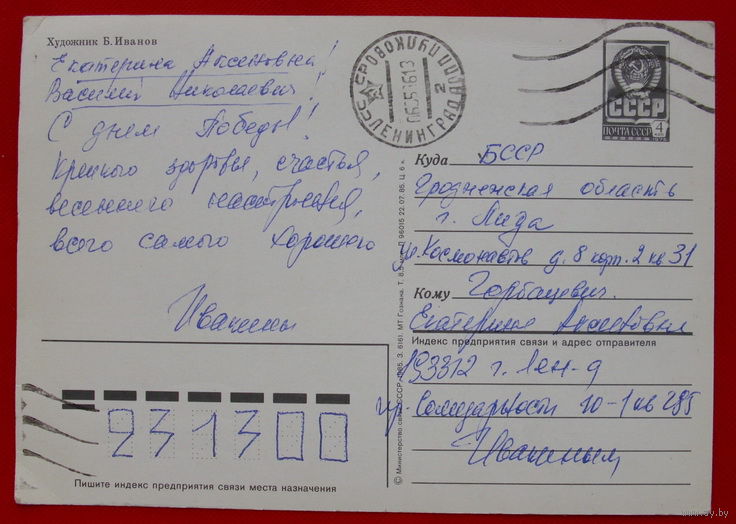 Художник Б. Иванов
Екатерина Аксентовна!
Василий Николаевич!
С днем Победы!
Крепкого здоровья, счастья,
весеннего настроения,
всего самого хорошего
Ивакины
СССР
ПОЧТА СССР
4
ЛЕНИНГРАД
2
Куда БССР
Гродненская область
г. Лида
ул. Космонавтов д. 8 корп. 2 кв 31
Кому Горбацевич
Екатерине Аксентовне
Индекс предприятия связи и адрес отправителя
193312 г. Лен-д
пр. Солидарности 10-1 кв 285
Ивакиным
231300
Пишите индекс предприятия связи места назначения
© Министерство связи СССР, 1985. З. 6161. МТ Гознака.
22. 07. 85. Ц. 6 к.